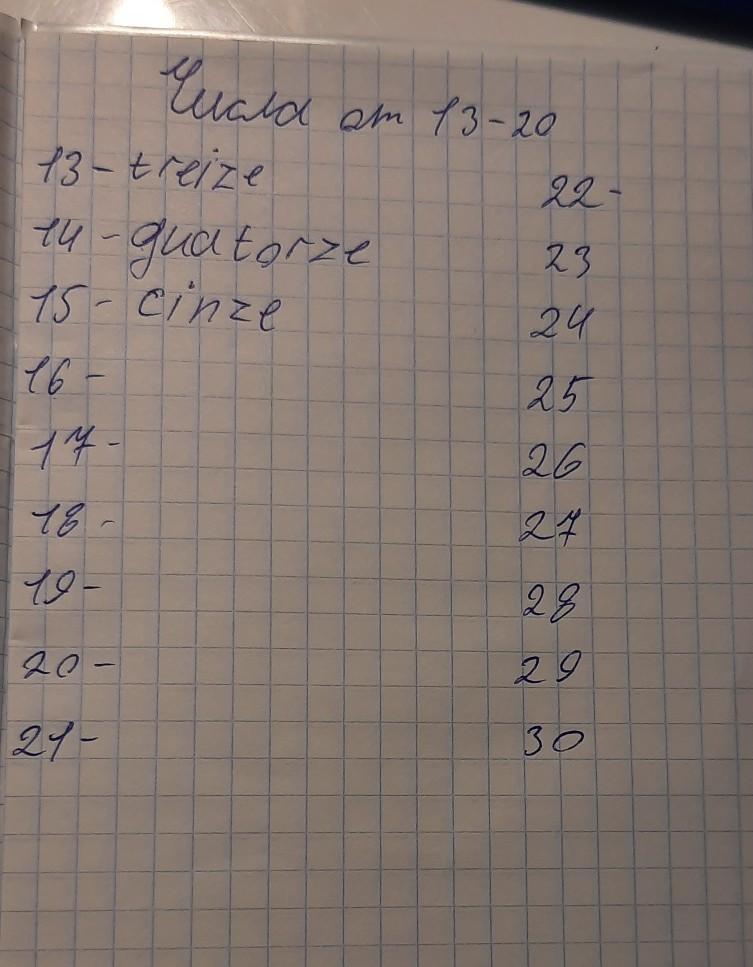 Числа от 13-20
13 - treize
14 - quatorze
15 - cinze
16 -
17 -
18 -
19 -
20 -
21 -
22 -
23
24
25
26
27
28
29
30